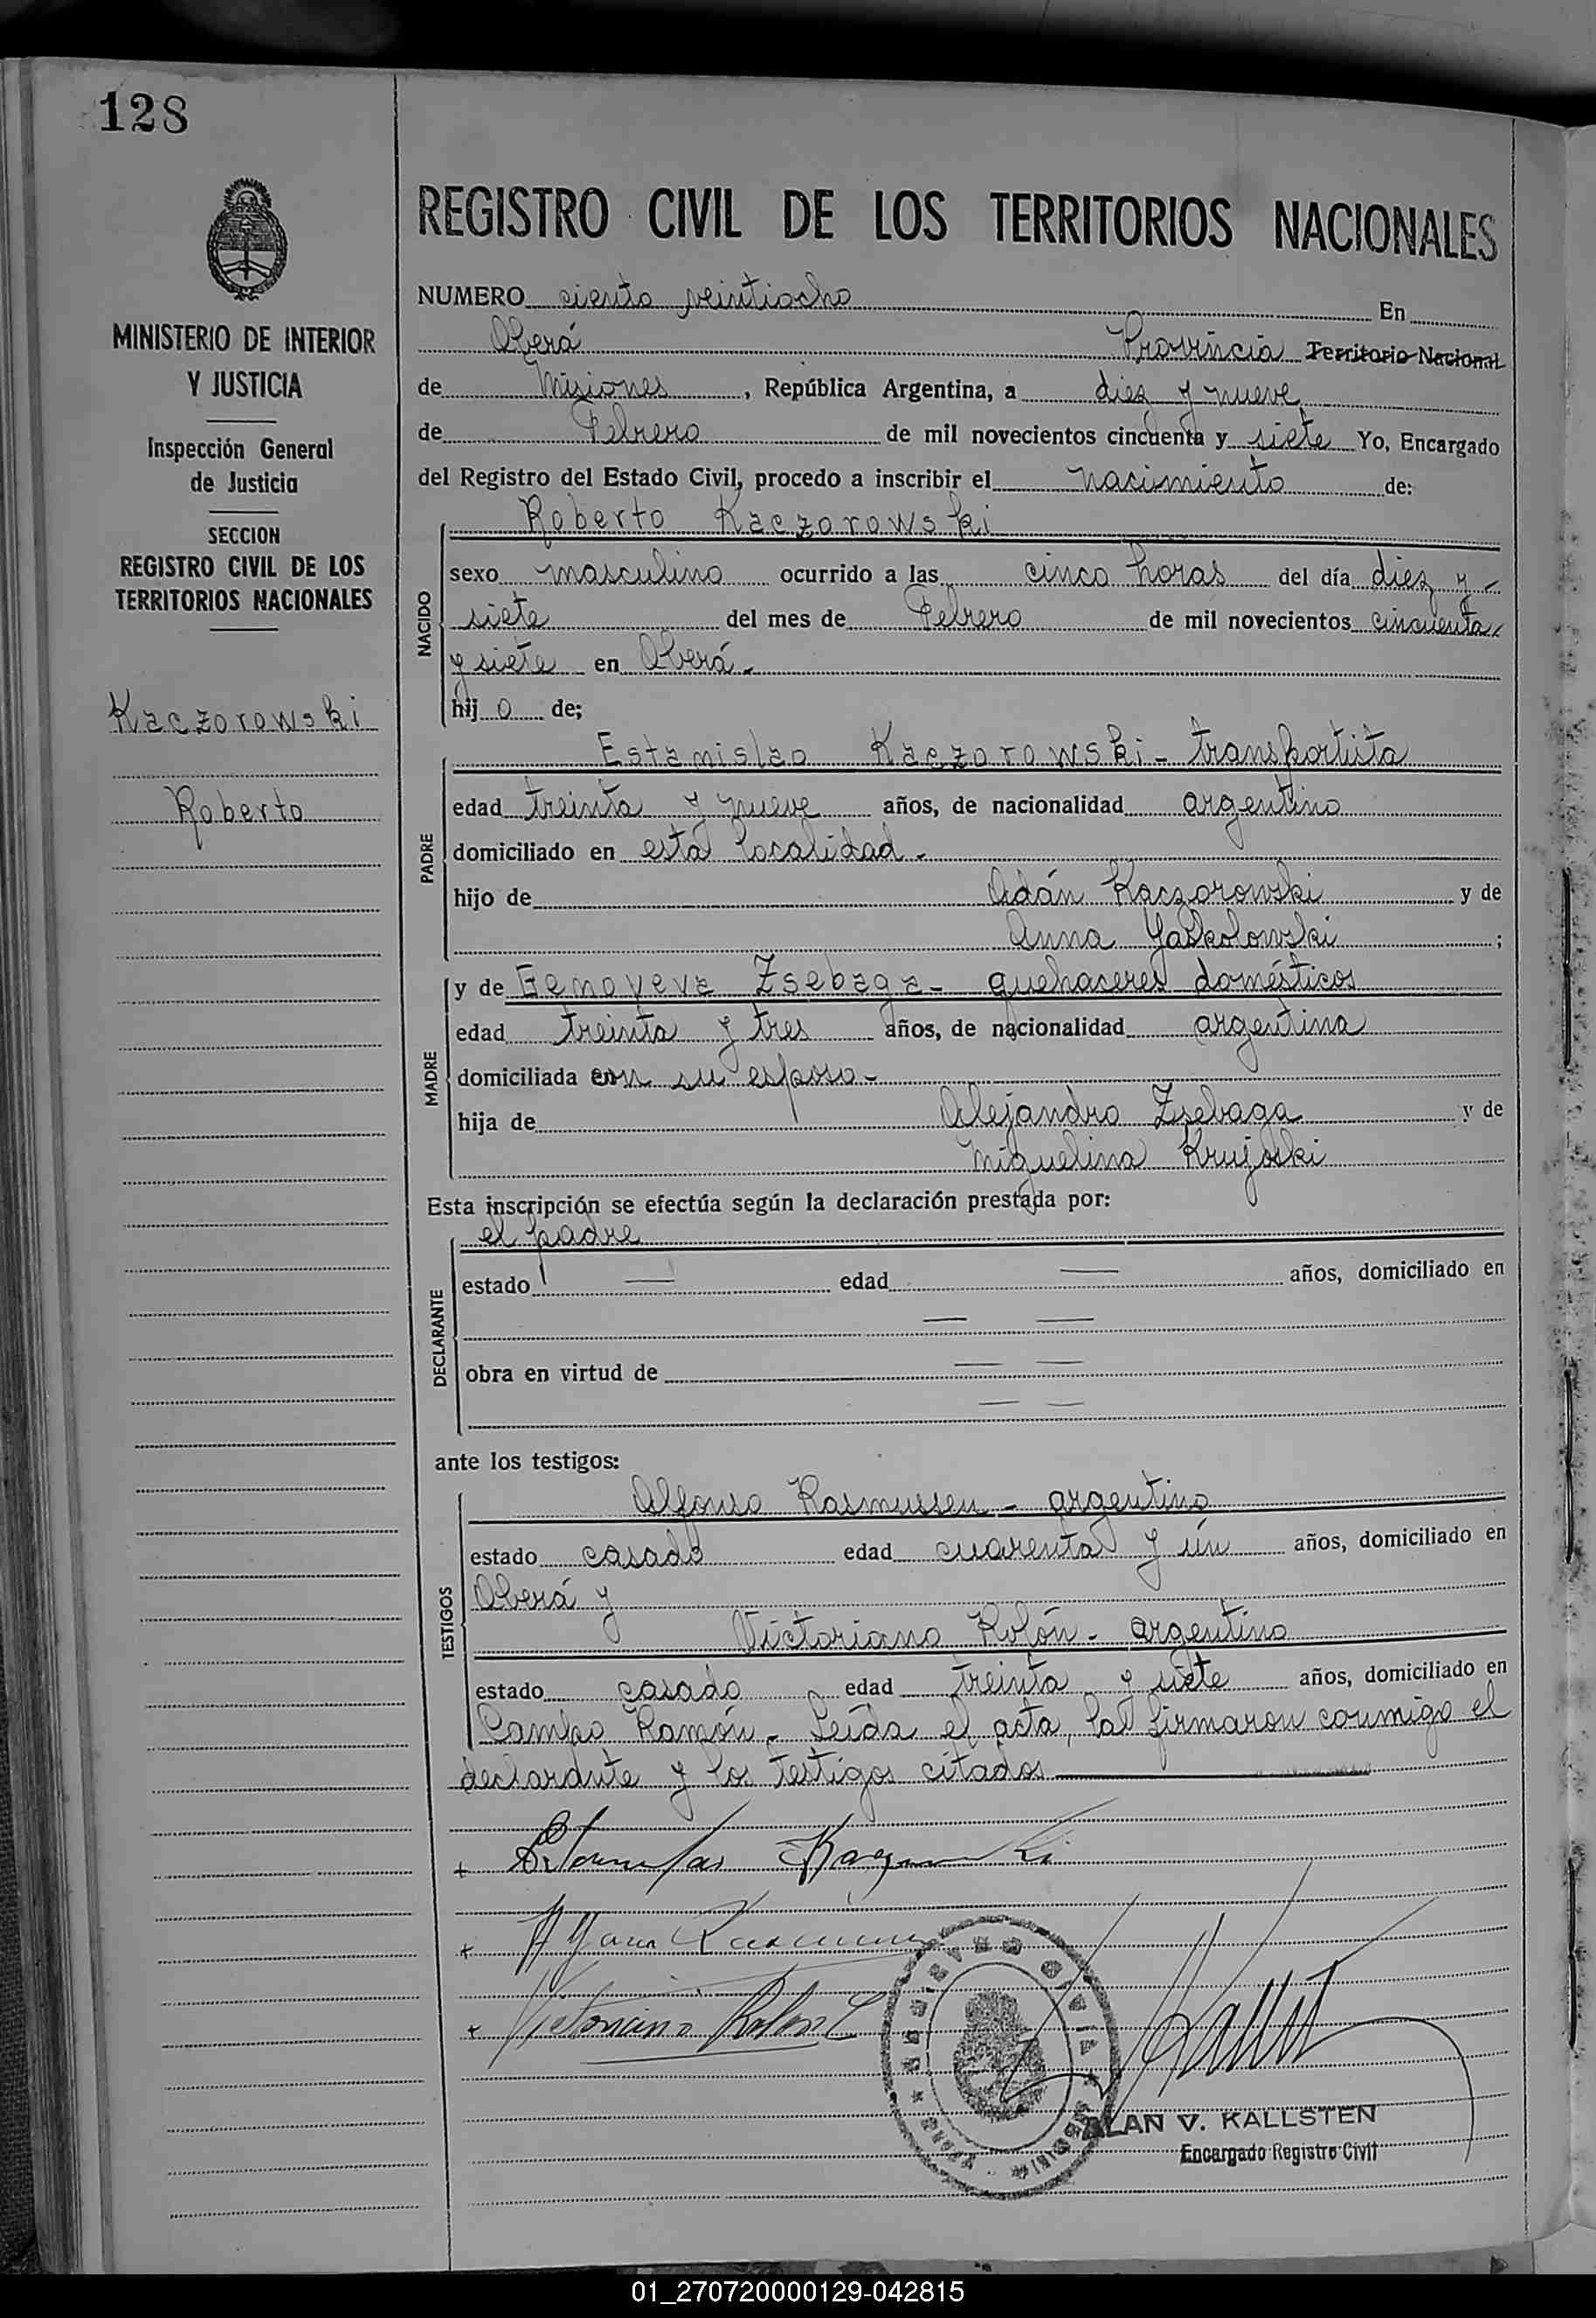 128
MINISTERIO DE INTERIOR
Y JUSTICIA
Inspección General
de Justicia
SECCION
REGISTRO CIVIL DE LOS
TERRITORIOS NACIONALES
Kaczorowski
Roberto
REGISTRO CIVIL DE LOS TERRITORIOS NACIONALES
NUMERO ciento veintiocho En
Oberá Provincia Territorio Nacional
de Misiones, República Argentina, a diez y nueve
de Febrero de mil novecientos cincuenta y siete Yo, Encargado
del Registro del Estado Civil, procedo a inscribir el nacimiento de:
NACIDO
Roberto Kaczorowski
sexo masculino ocurrido a las cinco horas del día diez y
siete del mes de Febrero de mil novecientos cincuenta
y siete en Oberá.
hijo de;
PADRE
Estanislao Kaczorowski - transportista
edad treinta y nueve años, de nacionalidad argentino
domiciliado en esta localidad.
hijo de Adán Kaczorowski y de
Anna Yaskolowski;
MADRE
y de Genoveva Zsebaga - quehaceres domésticos
edad treinta y tres años, de nacionalidad argentina
domiciliada con su esposo.
hija de Alejandro Zsebaga y de
Miguelina Krujoski
Esta inscripción se efectúa según la declaración prestada por:
DECLARANTE
el padre
estado — edad — años, domiciliado en
— —
obra en virtud de — —
— —
ante los testigos:
TESTIGOS
Alfonso Rasmussen - argentino
estado casado edad cuarenta y un años, domiciliado en
Oberá y
Victoriano Rolón - argentino
estado casado edad treinta y siete años, domiciliado en
Campo Ramón. Leída el acta, la firmaron conmigo el
declarante y los testigos citados
Estanislao Kaczorowski
Alfonso Rasmussen
Victoriano Rolon
REGISTRO CIVIL
ALAN V. KALLSTEN
Encargado Registro Civil
01_270720000129-042815